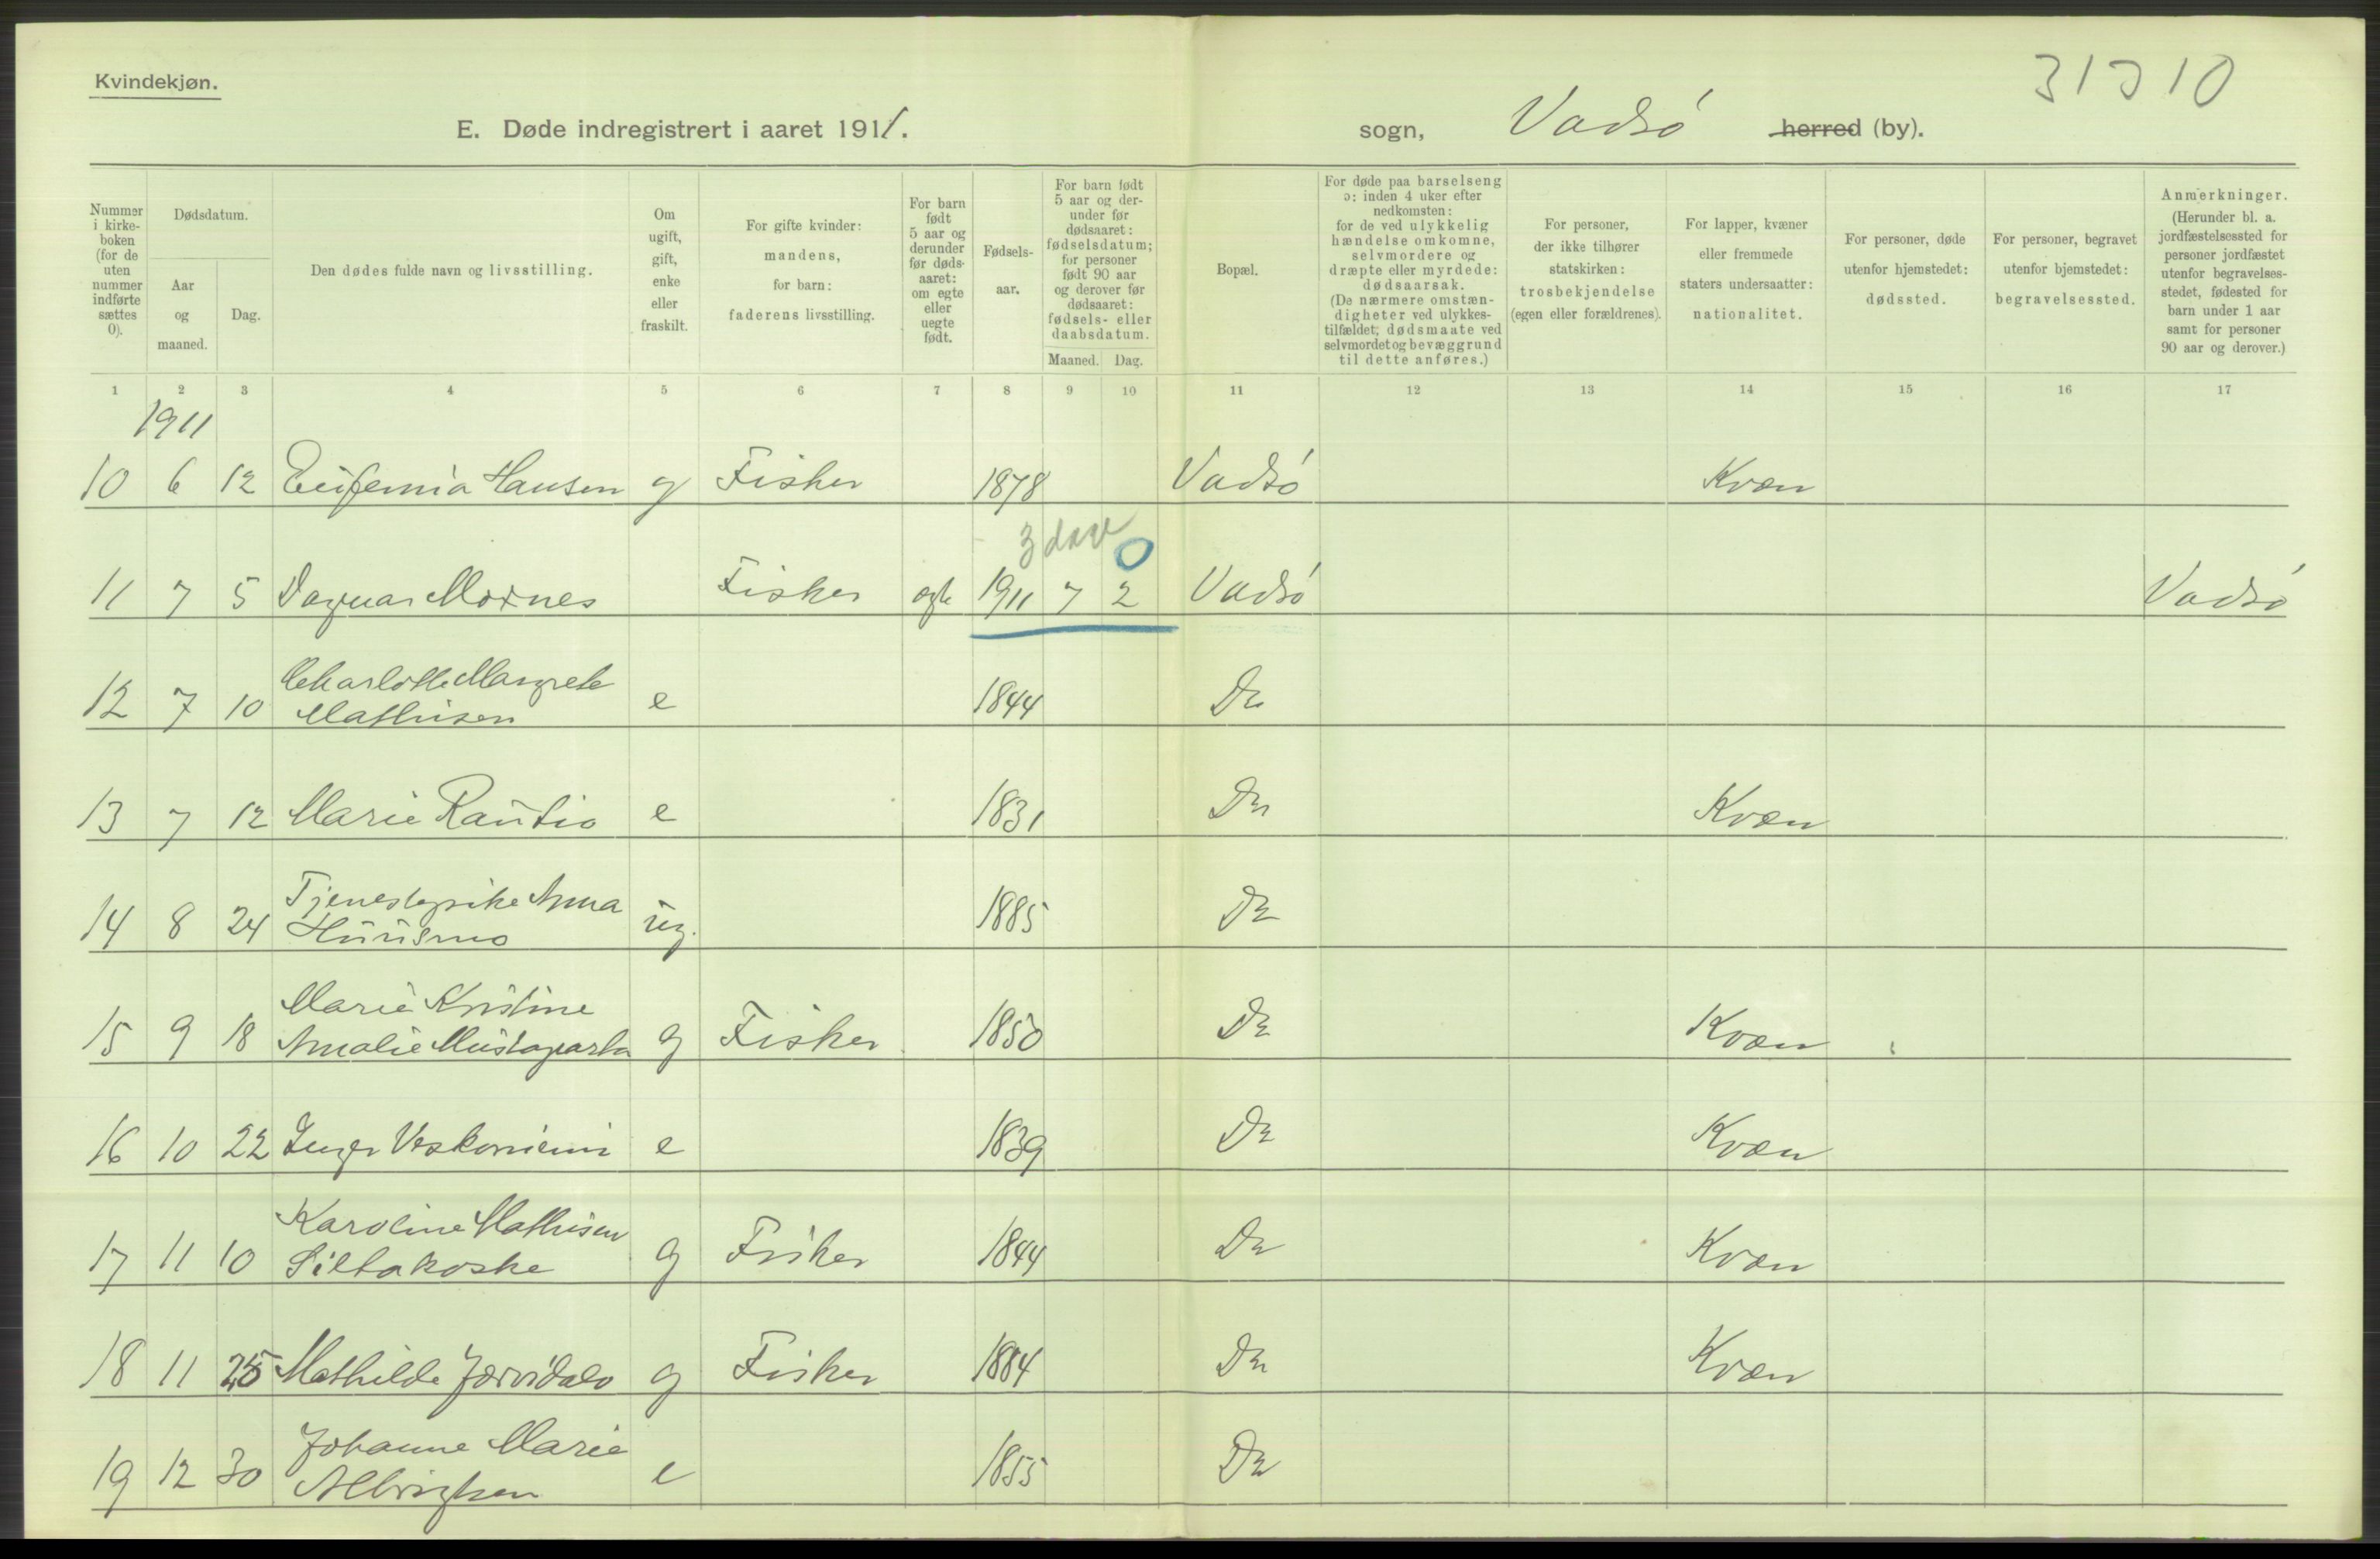 Kvindekjøn.
31310
E. Døde indregistrert i aaret 1911.
sogn, Vadsö herred (by).
Nummer i kirke- boken (for de uten nummer indførte sættes 0).
Dødsdatum.
Aar og maaned.
Dag.
Den dødes fulde navn og livsstilling.
Om ugift, gift, enke eller fraskilt.
For gifte kvinder: mandens, for barn: faderens livsstilling.
For barn født 5 aar og derunder før døds- aaret: om egte eller uegte født.
Fødsels- aar.
For barn født 5 aar og der- under før dødsaaret: fødselsdatum; for personer født 90 aar og derover før dødsaaret: fødsels- eller daabsdatum.
Maaned. Dag.
Bopæl.
For døde paa barselseng ɔ: inden 4 uker efter nedkomsten: for de ved ulykkelig hændelse omkomne, selvmordere og dræpte eller myrdede: dødsaarsak. (De nærmere omstæn- digheter ved ulykkes- tilfældet, dødsmaate ved selvmordet og bevæggrund til dette anføres.)
For personer, der ikke tilhører statskirken: trosbekjendelse (egen eller forældrenes).
For lapper, kvæner eller fremmede staters undersaatter: nationalitet.
For personer, døde utenfor hjemstedet: dødssted.
For personer, begravet utenfor bjemstedet: begravelsessted.
Anmerkninger. (Herunder bl. a. jordfæstelsessted for personer jordfæstet utenfor begravelses- stedet, fødested for barn under 1 aar samt for personer 90 aar og derover.)
1 2 3 4 5 6 7 8 9 10 11 12 13 14 15 16 17
1911
10 6 12 Eufemia Hansen g Fisker 1878 Vadsö Kvæn
3 dage 0
11 7 5 Dagmar Moxnes Fisker egte 1911 7 2 Vadsö Vadsö
Charlotte Margrete
12 7 10 Mathisen e 1844 Do
13 7 12 Marie Rautio e 1831 Do Kvæn
Tjenestepike Anna
14 8 24 Huusmo ug. 1885 Do
Marie Kristine
15 9 18 Amalie Mustaparta g Fisker 1850 Do Kvæn
16 10 22 Inger Veskoniemi e 1839 Do Kvæn
Karoline Mathisen
17 11 10 Siltakoske g Fisker 1844 Do Kvæn
18 11 25 Mathilde Jærvidalo g Fisker 1884 Do Kvæn
Johanne Marie
19 12 30 Albrigtsen e 1855 Do